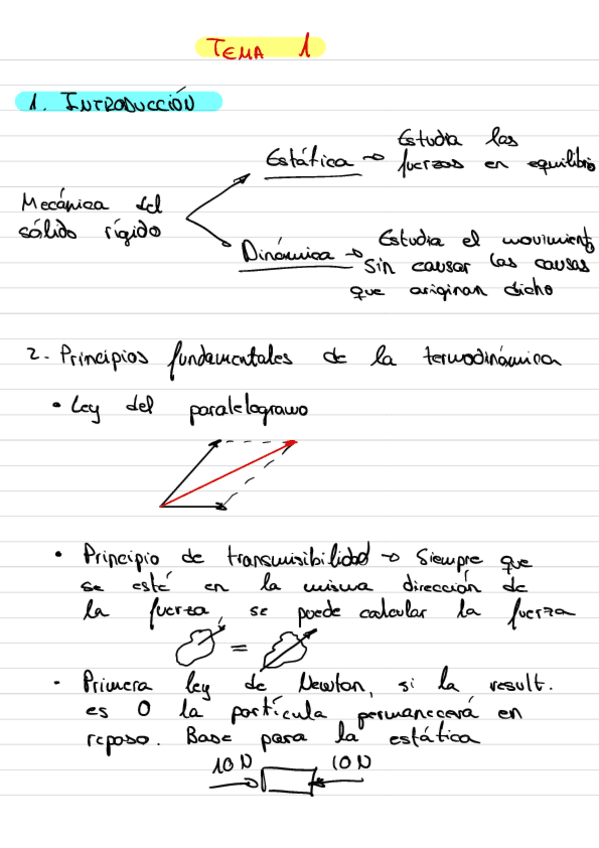 TEMA 1
1. INTRODUCCIÓN
Mecánica del
sólido rígido
Estática → Estudia las
fuerzas en equilibrio
Dinámica → Estudia el movimiento
Sin causar las causas
que originan dicho
2. Principios fundamentales de la termodinámica
• Ley del paralelogramo
• Principio de transmisibilidad → Siempre que
se esté en la misma dirección de
la fuerza, se puede calcular la fuerza
=
• Primera ley de Newton, si la result.
es 0 la partícula permanecerá en
reposo. Base para la estática
10 N 10 N